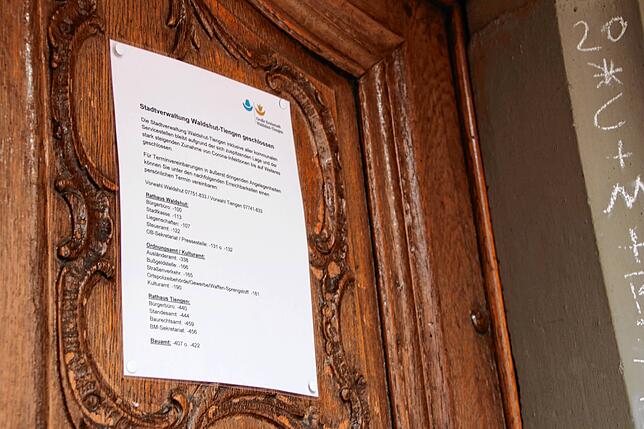 Große Kreisstadt
Waldshut-Tiengen
Stadtverwaltung Waldshut-Tiengen geschlossen
Die Stadtverwaltung Waldshut-Tiengen inklusive aller kommunalen
Servicestellen bleibt aufgrund der sich zuspitzenden Lage und der
stark steigenden Zunahme von Corona-Infektionen bis auf Weiteres
geschlossen.
Für Terminvereinbarungen in äußerst dringenden Angelegenheiten
können Sie unter den nachfolgenden Erreichbarkeiten einen
persönlichen Termin vereinbaren:
Vorwahl Waldshut 07751-833 / Vorwahl Tiengen 07741-833
Rathaus Waldshut:
Bürgerbüro: -100
Stadtkasse: -113
Liegenschaften: -107
Steueramt: -122
OB-Sekretariat / Pressestelle: -131 o. -132
Ordnungsamt / Kulturamt:
Ausländeramt: -338
Bußgeldstelle: -166
Straßenverkehr: -165
Ortspolizeibehörde/Gewerbe/Waffen-Sprengstoff: -161
Kulturamt: -190
Rathaus Tiengen:
Bürgerbüro: -440
Standesamt: -444
Baurechtsamt: -459
BM-Sekretariat: -456
Bauamt: -407 o. -422
20*C+M